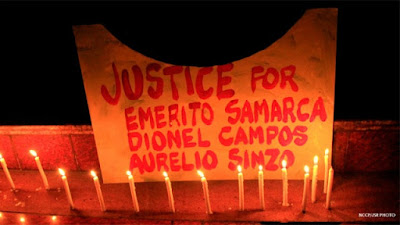 JUSTICE FOR
EMERITO SAMARCA
DIONEL CAMPOS
AURELIO SINZO
NCCP/JSR PHOTO